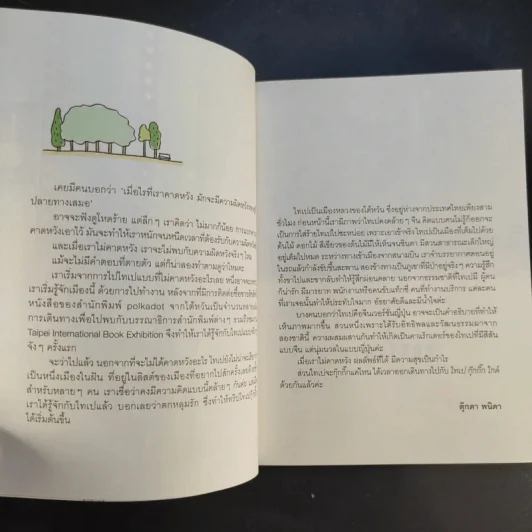 เคยมีคนบอกว่า 'เมื่อไรที่เราคาดหวัง มักจะมีความผิดหวังรออยู่
ปลายทางเสมอ'
อาจจะฟังดูโหดร้าย แต่ลึกๆ เราคิดว่า ไม่มากก็น้อย การ
คาดหวังเอาไว้ มันจะทำให้เราหนักจนหนืดเวลาที่ต้องรับกับความผิดหวัง
และเมื่อเราไม่คาดหวัง เราจะไม่พบกับความผิดหวังจริงๆ ไหม
แม้จะไม่มีคำตอบที่ตายตัว แต่ก็น่าลองทำตามดูว่าไหมคะ
เราเริ่มจากการไปไทเปแบบที่ไม่คาดหวังอะไรเลย
เราเริ่มรู้จักเมืองนี้ ด้วยการไปทำงาน หลังจากที่มีการติดต่อซื้อ
หนังสือของสำนักพิมพ์ polkadot จากไต้หวันเป็นจำนวน
การเดินทางเพื่อไปพบกับบรรณาธิการสำนักพิมพ์ต่างๆ
Taipei International Book Exhibition จึงทำให้เราได้รู้จักไทเป
จริงๆ ครั้งแรก
จะว่าไปแล้ว นอกจากที่จะไม่ได้คาดหวังอะไร ไทเปยังไม่
เป็นหนึ่งเมืองในฝัน ที่อยู่ในลิสต์ของเมืองที่อยากไปสักครั้ง
สำหรับหลายๆ คน เราเชื่อว่าคงมีความคิดแบบนี้คล้ายๆ กันค่ะ
เราได้รู้จักกับไทเปแล้ว บอกเลยว่าตกหลุมรัก ซึ่งทำให้ทริปไทเป
ได้เริ่มต้นขึ้น
ไทเปเป็นเมืองหลวงของไต้หวัน ซึ่งอยู่ห่างจากประเทศไทยเพียงสาม
ชั่วโมง ก่อนหน้านี้เรามีภาพว่าไทเปคงคล้ายๆ จีน คิดแบบคนไม่รู้ก็ออกจะ
เป็นการใส่ร้ายไทเปซะหน่อย เพราะเอาเข้าจริง ไทเปเป็นเมืองที่เต็มไปด้วย
ต้นไม้ ดอกไม้ สีเขียวของต้นไม้มีให้เห็นจนชินตา มีสวนสาธารณะเล็กใหญ่
อยู่เต็มไปหมด ระหว่างทางเข้าเมืองจากสนามบิน เราจำบรรยากาศตอนอยู่
ในรถแล้วกำลังขับขึ้นสะพาน สองข้างทางเป็นภูเขาที่มีป่าอยู่จริงๆ ความรู้สึก
ทั้งขาไปและขากลับ ทำให้รู้สึกผ่อนคลาย นอกจากธรรมชาติที่ไทเปมี ผู้คน
ก็น่ารัก มีมารยาท พนักงานหรือคนขับแท็กซี่ คนที่ทำงานบริการ แต่ละคน
ที่เราเจอนั้นทำให้ประทับใจมาก อัธยาศัยดีและมีน้ำใจค่ะ
บางคนบอกว่าไทเปคือจีนเวอร์ชันญี่ปุ่น อาจจะเป็นคำอธิบายที่ทำให้
เห็นภาพมากขึ้น ส่วนหนึ่งเพราะได้รับอิทธิพลและวัฒนธรรมมาจาก
สองชาตินี้ ความผสมผสานกันก็ทำให้เกิดเป็นคาแร็กเตอร์ของไทเปที่มีสีสัน
แบบจีน แต่นุ่มนวลในแบบญี่ปุ่นค่ะ
เมื่อเราไม่คาดหวัง ผลลัพธ์ที่ได้ มีความสุขเป็นกำไร
ส่วนไทเปจะกุ๊กกิ๊กแค่ไหน ได้เวลาออกเดินทางไปกับ ไทเป กุ๊กกิ๊ก ไกด์
ด้วยกันแล้วค่ะ
ตุ๊กตา พนิดา